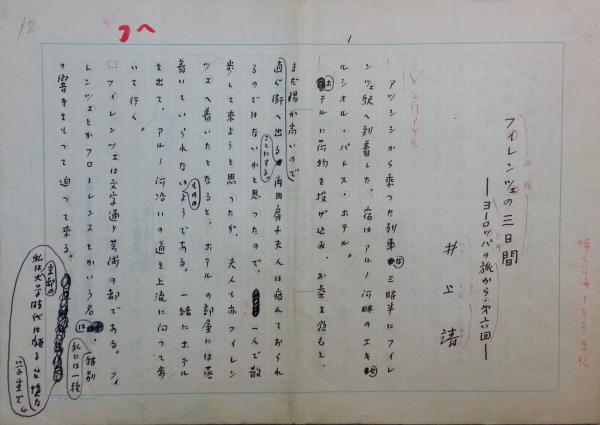 12
1
フイレンツェの三日間
―ヨーロッパの旅から・第六回―
井上靖
一行アケル
アッシジから乗った列車は三時半にフイレ
ンツェ駅へ到着した。宿はアルノ河畔のエキ
ルシオル・パレス・ホテル。
ホテルに荷物を投げ込み、お茶を飲むと、
まだ陽が高いので
直ぐ街へ出ることにする。内田房子夫人は疲れておられ
るのではないかと思ったので、一人で散
歩して来ようと思ったが、夫人も亦フイレン
ツェへ着いたとなると、ホテルの部屋には落
着いていられないもののようである。一緒にホテル
を出て、アルノ河沿いの道を上流に向って歩
いて行く。
フイレンツェは文字通り芸術の都である。フイ
レンツェとかフローレンスとかいう名は、私には一種特別
の響きをもって迫って来る。
私は大学時代は